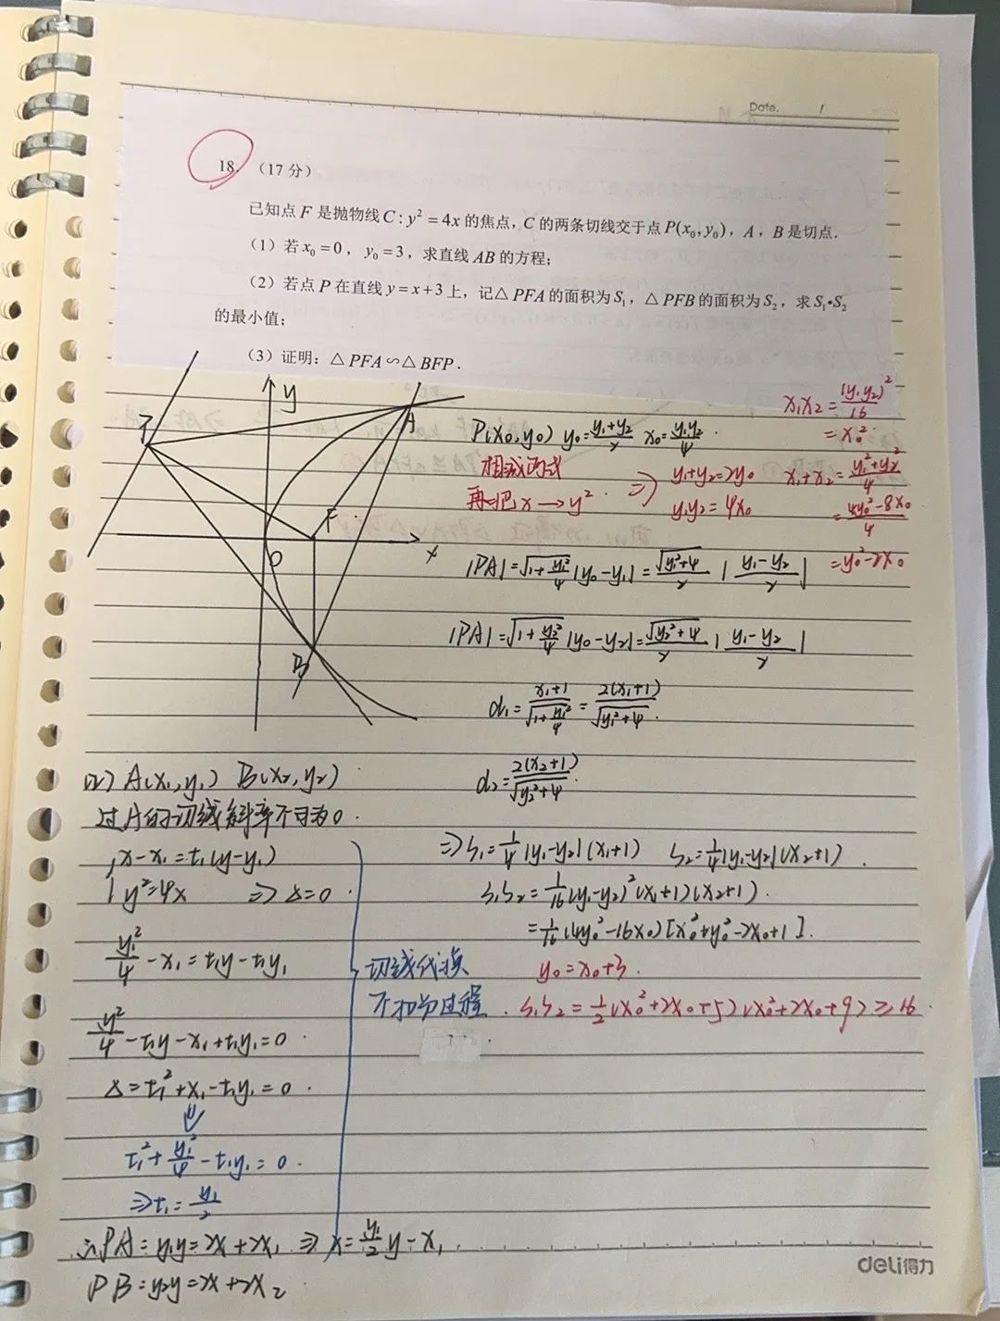 Date. /
18. (17分)
已知点F是抛物线C:y²=4x的焦点，C的两条切线交于点P(x₀,y₀)，A，B是切点.
(1) 若x₀=0，y₀=3，求直线AB的方程；
(2) 若点P在直线y=x+3上，记△PFA的面积为S₁，△PFB的面积为S₂，求S₁•S₂
的最小值；
(3) 证明：△PFA∽△BFP.
y
P
A
F
O
x
B
x₁x₂=(y₁y₂)²/16
=x₀²
P(x₀,y₀) y₀=(y₁+y₂)/2 x₀=y₁y₂/4
相减两式
再把x→y² ⇒ y₁+y₂=2y₀
y₁y₂=4x₀
x₁+x₂=(y₁²+y₂²)/4
=(4y₀²-8x₀)/4
=y₀²-2x₀
|PA|=√(1+y₁²/4)|y₀-y₁|=√(y₁²+4)/2 |(y₁-y₂)/2|
|PA|=√(1+y₂²/4)|y₀-y₂|=√(y₂²+4)/2 |(y₁-y₂)/2|
d₁=(x₁+1)/√(1+y₁²/4)=2(x₁+1)/√(y₁²+4).
d₂=2(x₂+1)/√(y₂²+4).
(2) A(x₁,y₁) B(x₂,y₂)
过A的切线斜率不可为0.
{x-x₁=t₁(y-y₁)
y²=4x ⇒ Δ=0.
y²/4-x₁=t₁y-t₁y₁
y²/4-t₁y-x₁+t₁y₁=0
Δ=t₁²+x₁-t₁y₁=0.
⇓
t₁²+y₁²/4-t₁y₁=0.
⇒t₁=y₁/2
∴PA：y₁y=2x+2x₁ ⇒ x=y₁/2 y-x₁.
PB：y₂y=2x+2x₂
切线代换
不扣分过程.
⇒S₁=1/4|y₁-y₂|(x₁+1) S₂=1/4|y₁-y₂|(x₂+1).
S₁S₂=1/16(y₁-y₂)²(x₁+1)(x₂+1).
=1/16(4y₀²-16x₀)[x₀²+y₀²-2x₀+1].
y₀=x₀+3.
S₁S₂=1/2(x₀²+2x₀+5)(x₀²+2x₀+9)≥16.
deli得力